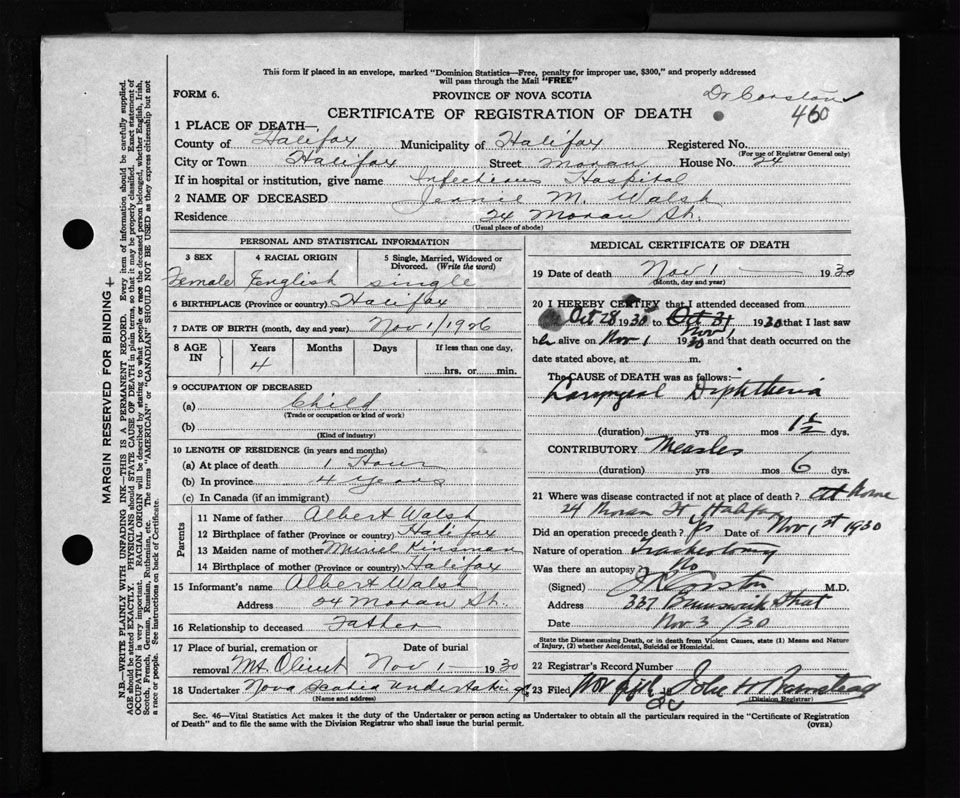 This form if placed in an envelope, marked "Dominion Statistics—Free, penalty for improper use, $300," and properly addressed
will pass through the Mail "FREE"
FORM 6. PROVINCE OF NOVA SCOTIA
CERTIFICATE OF REGISTRATION OF DEATH
460
1 PLACE OF DEATH—
County of Halifax Municipality of Halifax Registered No.
(For use of Registrar General only)
City or Town Halifax Street Moran House No. 24
If in hospital or institution, give name Infectious Hospital
2 NAME OF DECEASED Jeanie M. Walsh
Residence 24 Moran St.
(Usual place of abode)
PERSONAL AND STATISTICAL INFORMATION
3 SEX 4 RACIAL ORIGIN 5 Single, Married, Widowed or Divorced. (Write the word)
Female English single
6 BIRTHPLACE (Province or country) Halifax
7 DATE OF BIRTH (month, day and year) Nov 1/1926
8 AGE IN Years Months Days If less than one day,
4 hrs. or min.
9 OCCUPATION OF DECEASED
(a) Child
(Trade or occupation or kind of work)
(b)
(Kind of industry)
10 LENGTH OF RESIDENCE (in years and months)
(a) At place of death 1 Hour
(b) In province 4 years
(c) In Canada (if an immigrant)
Parents
11 Name of father Albert Walsh
12 Birthplace of father (Province or country) Halifax
13 Maiden name of mother Muriel Kinsman
14 Birthplace of mother (Province or country) Halifax
15 Informant's name Albert Walsh
Address 24 Moran St.
16 Relationship to deceased Father
17 Place of burial, cremation or removal Mt Olivet Date of burial Nov 1 1930
18 Undertaker Nova Scotia Undertaking
(Name and address)
MEDICAL CERTIFICATE OF DEATH
19 Date of death Nov 1 — 1930
(Month, day and year)
20 I HEREBY CERTIFY that I attended deceased from
Oct 28 1930 to Oct 31 Nov 1 1930 that I last saw
her alive on Nov 1 1930 and that death occurred on the
date stated above, at m.
The CAUSE of DEATH was as follows:
Laryngeal Diphtheria
(duration) yrs mos 1½ dys.
CONTRIBUTORY Measles
(duration) yrs mos 6 dys.
21 Where was disease contracted if not at place of death? At home
24 Moran St Halifax
Did an operation precede death? Yes Date of Nov 1st 1930
Nature of operation Tracheotomy
Was there an autopsy? No
(Signed) M.D.
Address 337 Brunswick Street
Date Nov 3/30
State the Disease causing Death, or in death from Violent Causes, state (1) Means and Nature of Injury, (2) whether Accidental, Suicidal or Homicidal.
22 Registrar's Record Number
23 Filed Nov
(Division Registrar)
Sec. 46—Vital Statistics Act makes it the duty of the Undertaker or person acting as Undertaker to obtain all the particulars required in the "Certificate of Registration
of Death" and to file the same with the Division Registrar who shall issue the burial permit.
(OVER)
MARGIN RESERVED FOR BINDING
N.B.—WRITE PLAINLY WITH UNFADING INK—THIS IS A PERMANENT RECORD. Every item of information should be carefully supplied.
AGE should be stated EXACTLY. PHYSICIANS should STATE CAUSE OF DEATH in plain terms, so that it may be properly classified. Exact statement of
OCCUPATION is very important. RACIAL ORIGIN will be described by stating to what people or race the deceased person belonged, whether English, Irish,
Scotch, French, German, Russian, Ruthenian, etc. The terms "AMERICAN" or "CANADIAN" SHOULD NOT BE USED as they express citizenship but not
a race or people. See instructions on back of Certificate.